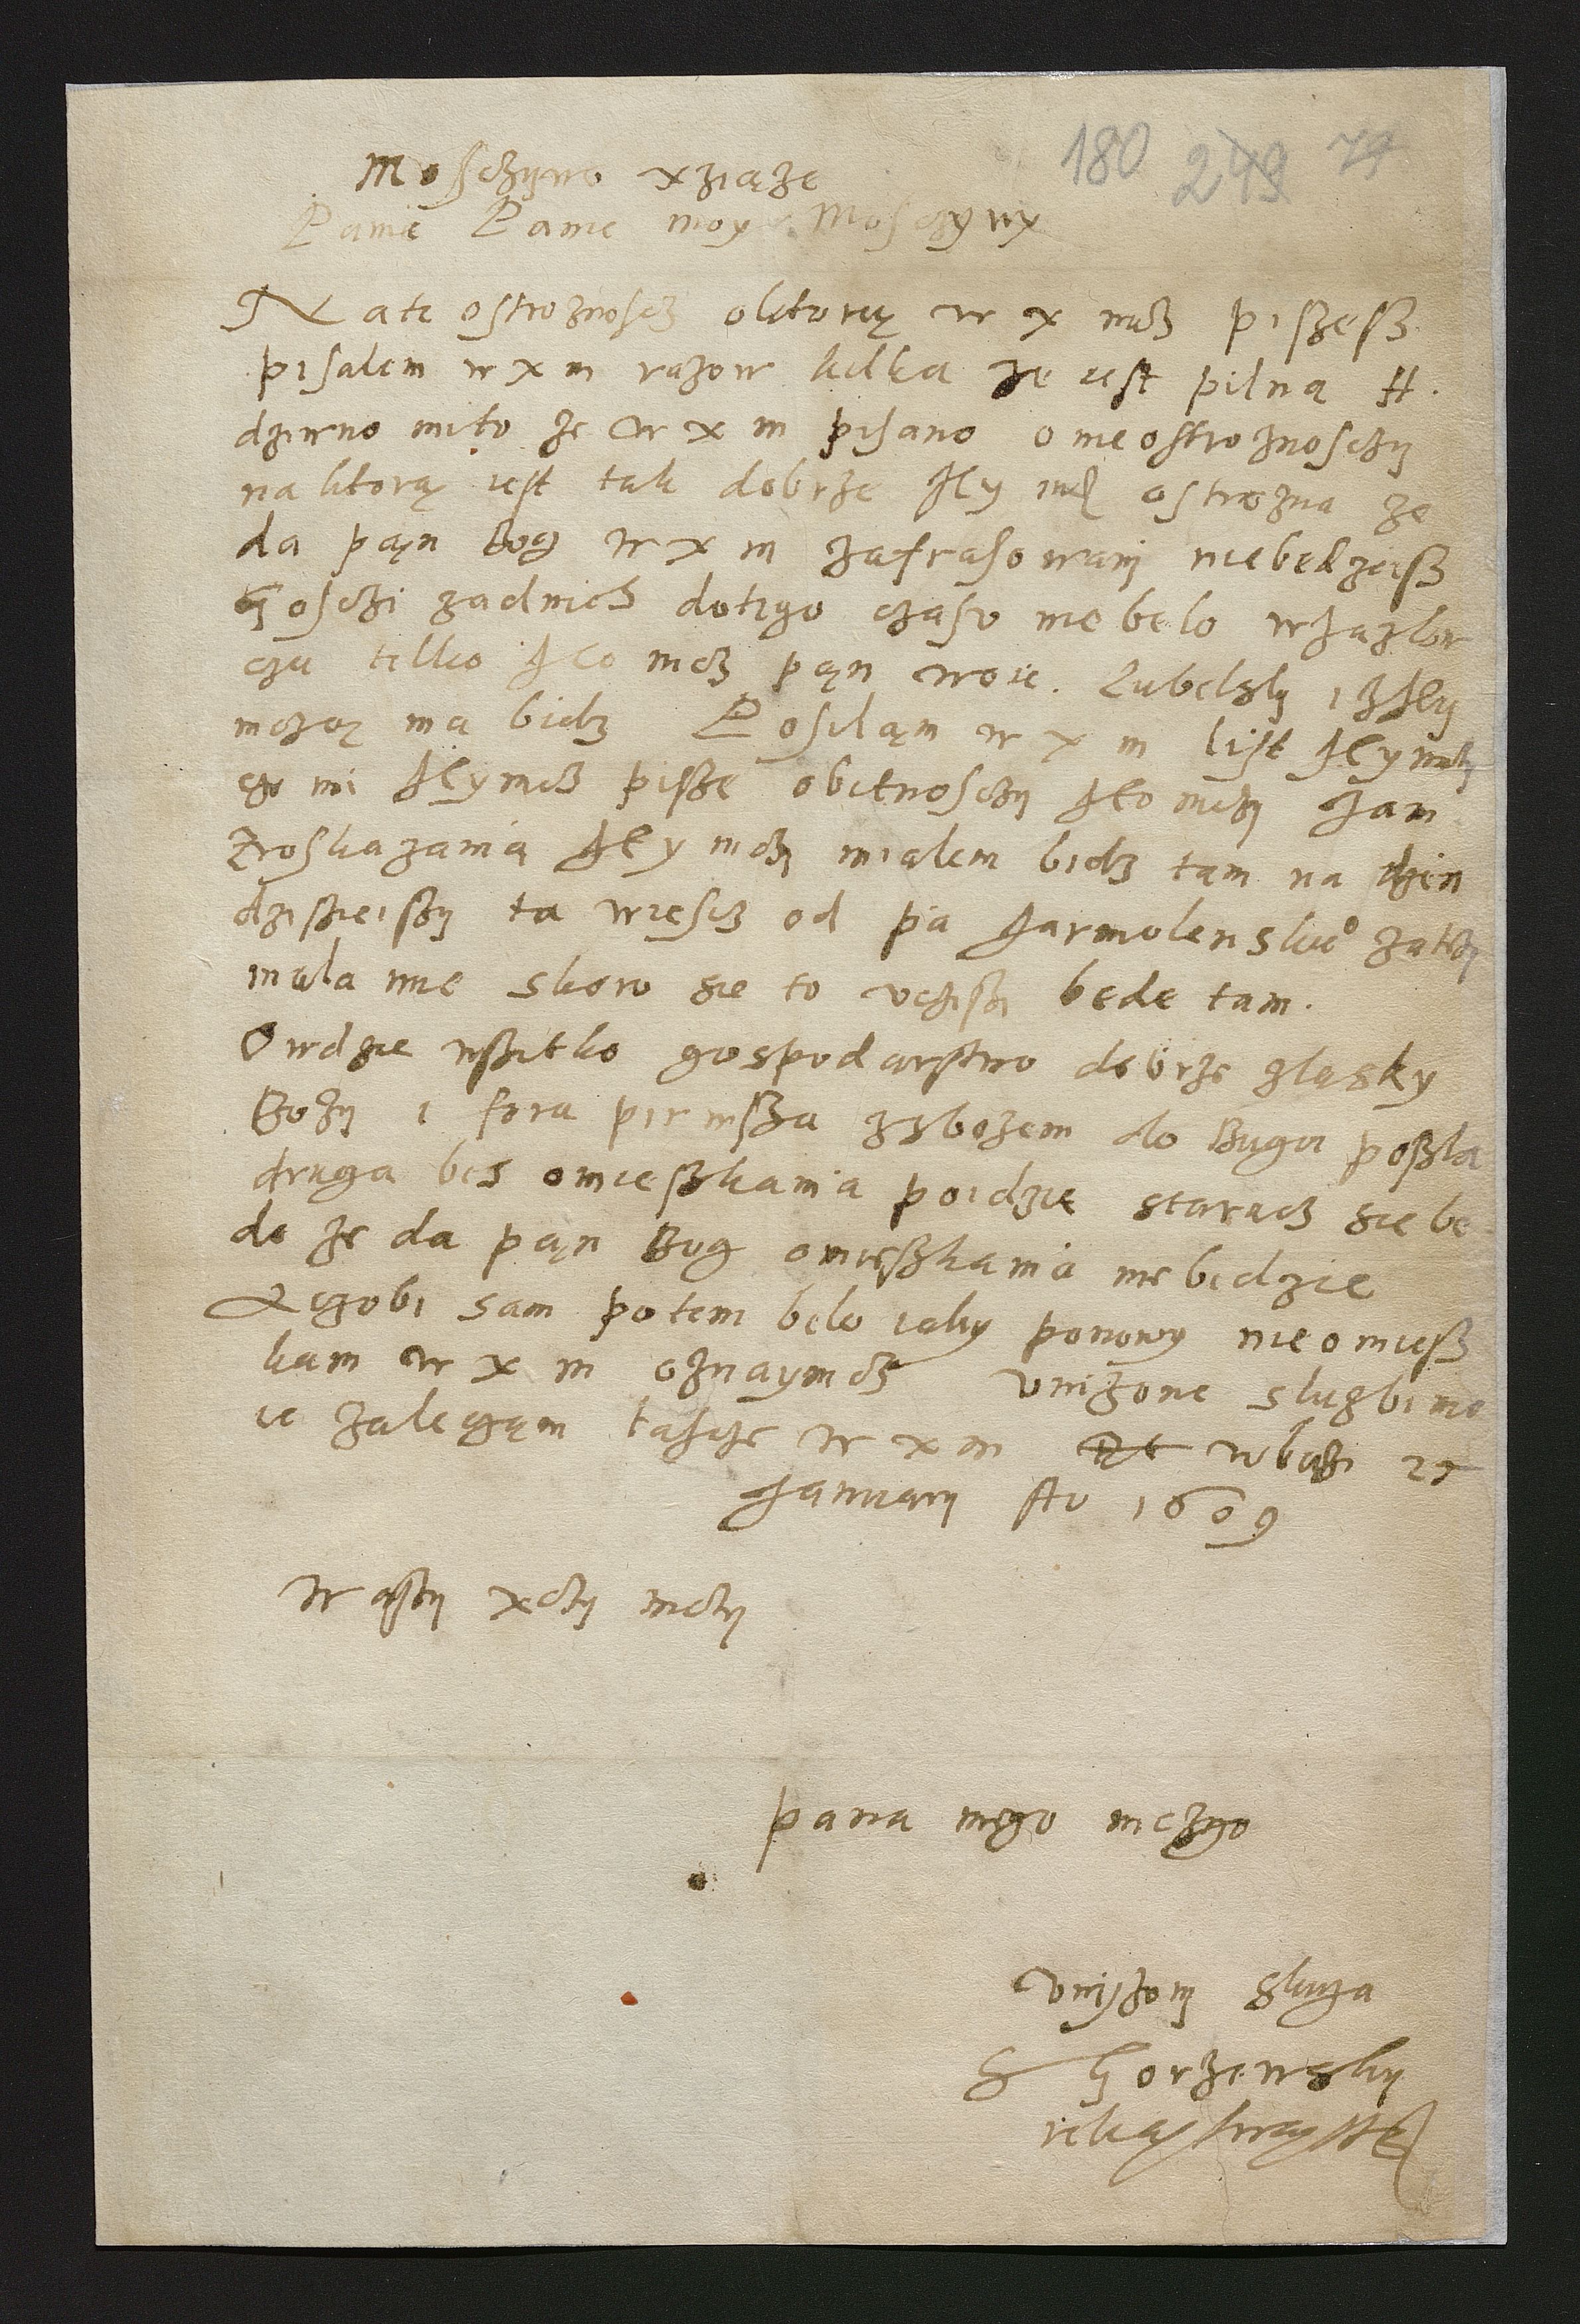 180 249 79
Mosczywe xziąże
Panie Panie moy Mosczywy
Na tę ostroznoscz oktorą w x mcz piszesz
pisalem w x m razow kilka ze iest pilna
dziwno mito ze w x m pisano o nieostroznosczy
na ktorą iest tak dobrze Jey mcz ostrozna ze
da pąn Bog w x m zafrasowany niebedziesz
Gosczi zadnich dotego czasu niebelo wzazlow
czu tilko Jeo mcz pąn woie. Lubelsky i z Jey
mczą ma bicz Posiląm w x m list Jey mczy
czo mi Jey mcz pisze obetnosczy Jeo mczy Jam
zroskazania Jey mczy mialem bicz tam na dzien
dzisieiszy ta wiescz od pa Jarmolenskieo zatrzy
mala mie skoro sie to ucziszi bede tam.
Owdzie wszitko gospodarstwo dobrze zląsky
Bozy i fora pirwsza zzbozem do Buga poszla
druga bes omieszkania poidzie staracz sie be
de ze da pąn Bog omieszkania niebedzie
czobi sam potem belo iaky ponowy nieomiesz
kam w x m oznaymicz unizone sluzbi mo
ie zalecząm łascze w x m w 25
January Ao 1609
Waszy xczy mczy
pana mego mczego
Unizony sluga
S Gorzewsky
ręką swą